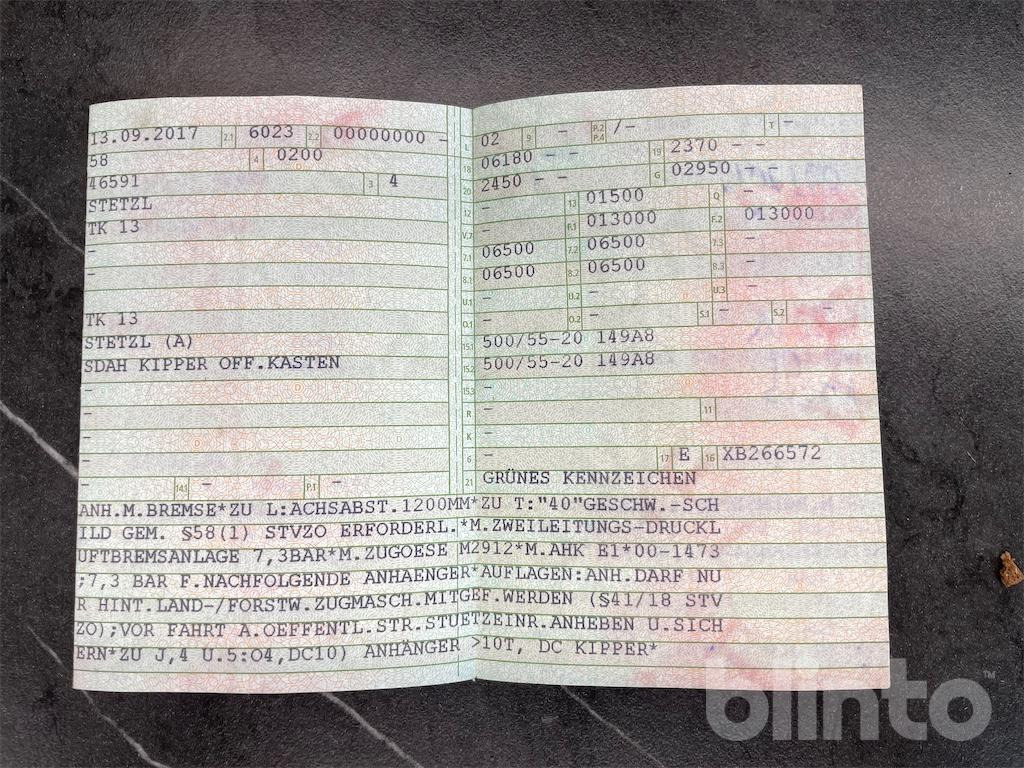 13.09.2017 2.1 6023 2.2 00000000 -
58 4 0200
46591 3 4
STETZL
TK 13
-
-
-
TK 13
STETZL (A)
SDAH KIPPER OFF.KASTEN
-
-
-
-
- 14.1 - P.1 -
L 02 9 - P.2 P.4 /- T -
18 06180 - - 19 2370 - -
20 2450 - - G 02950 - -
12 - 13 01500 Q -
V.7 - F.1 013000 F.2 013000
7.1 06500 7.2 06500 7.3 -
8.1 06500 8.2 06500 8.3 -
U.1 - U.2 - U.3 -
O.1 - O.2 - S.1 - S.2 -
15.1 500/55-20 149A8
15.2 500/55-20 149A8
15.3 -
R - 11
K -
6 - 17 E 16 XB266572
21 GRÜNES KENNZEICHEN
ANH.M.BREMSE*ZU L:ACHSABST.1200MM*ZU T:"40"GESCHW.-SCH
ILD GEM. §58(1) STVZO ERFORDERL.*M.ZWEILEITUNGS-DRUCKL
UFTBREMSANLAGE 7,3BAR*M.ZUGOESE M2912*M.AHK E1*00-1473
;7,3 BAR F.NACHFOLGENDE ANHAENGER*AUFLAGEN:ANH.DARF NU
R HINT.LAND-/FORSTW.ZUGMASCH.MITGEF.WERDEN (§41/18 STV
ZO);VOR FAHRT A.OEFFENTL.STR.STUETZEINR.ANHEBEN U.SICH
ERN*ZU J,4 U.5:O4,DC10) ANHÄNGER >10T, DC KIPPER*
blinto™